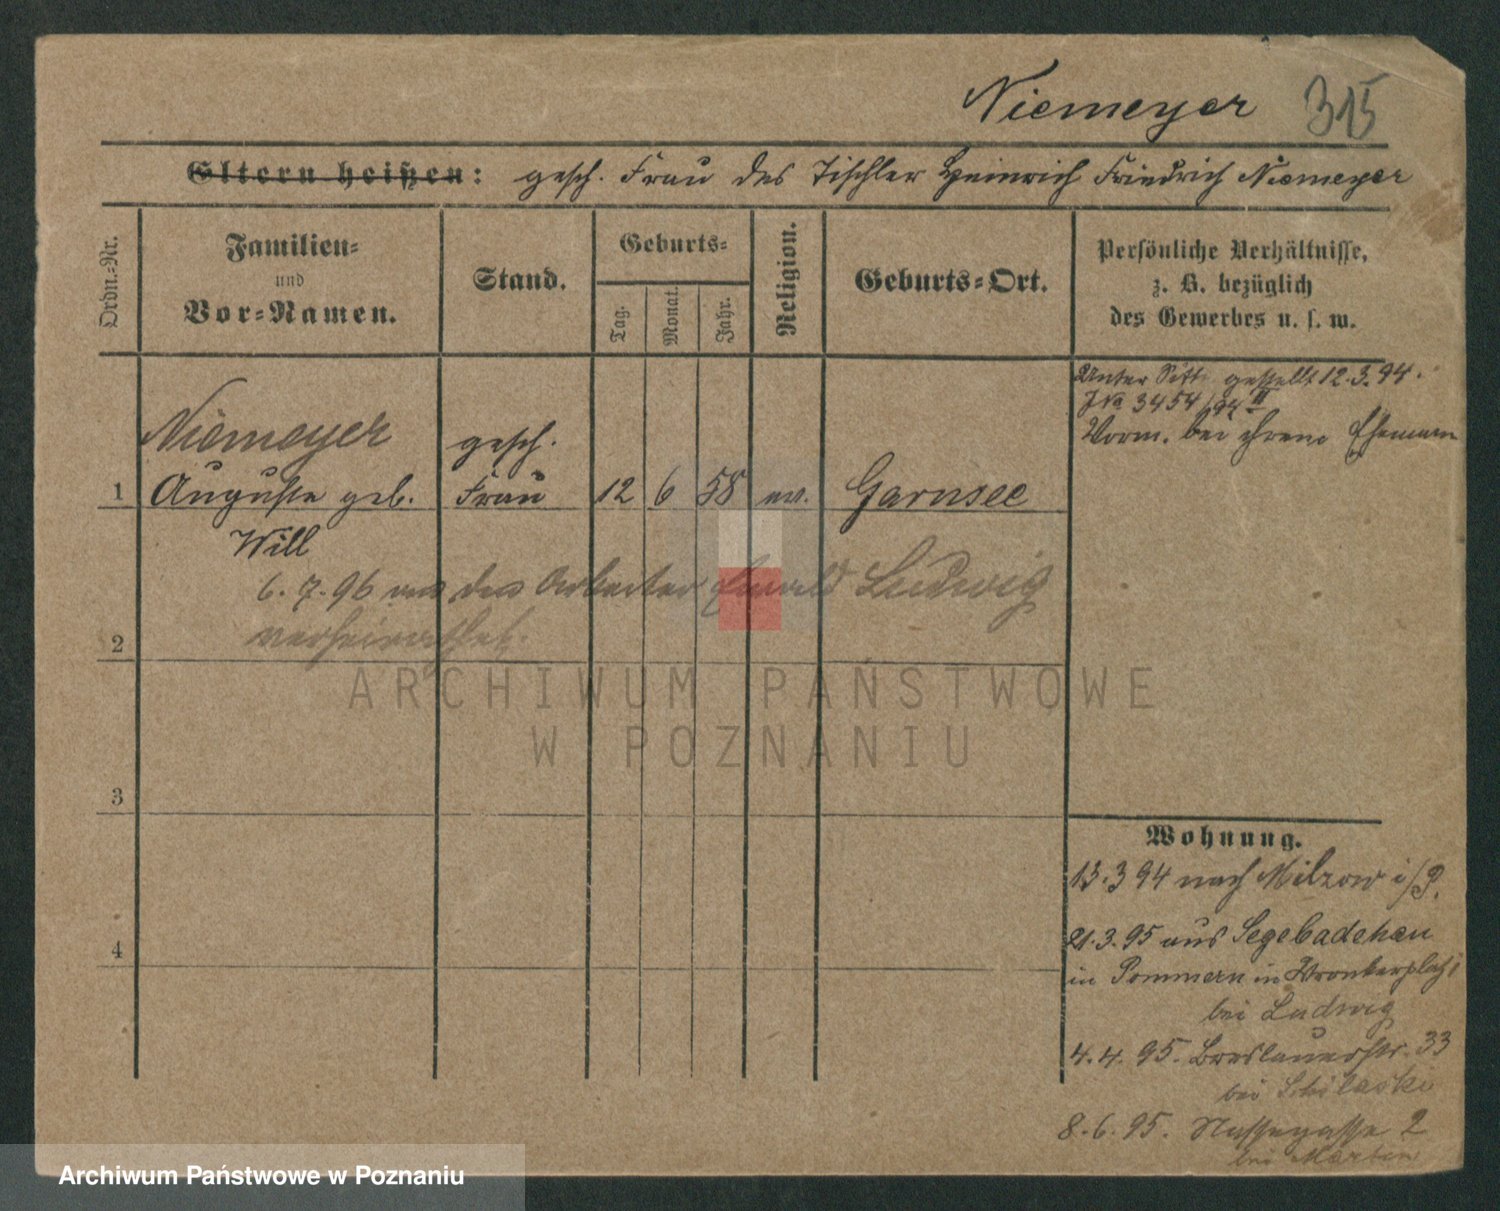 Niemeyer 315
Eltern heißen: gesch. Frau des Tischler Heinrich Friedrich Niemeyer
Ordn.-Nr.
Familien-
und
Vor-Namen.
Stand.
Geburts-
Tag.
Monat.
Jahr.
Religion.
Geburts-Ort.
Persönliche Verhältnisse,
z. B. bezüglich
des Gewerbes u. s. w.
Unter Sitt. gestellt 12.3.94.
JNo 3454/94 II
Vorm. bei ihrem Ehemann
Niemeyer gesch.
1 Auguste geb. Frau 12 6 58 ev. Garnsee
Will
6.7.96 den Arbeiter Ludwig
verheirathet.
2
3
4
Wohnung.
13.3 94 nach Milzow i/P.
21.3.95 aus Segebadehau
in Pommern in Wronkerplatz
bei Ludwig
4.4.95. Breslauerstr. 33
bei
8.6.95. 2
bei
ARCHIWUM PAŃSTWOWE
W POZNANIU
Archiwum Państwowe w Poznaniu